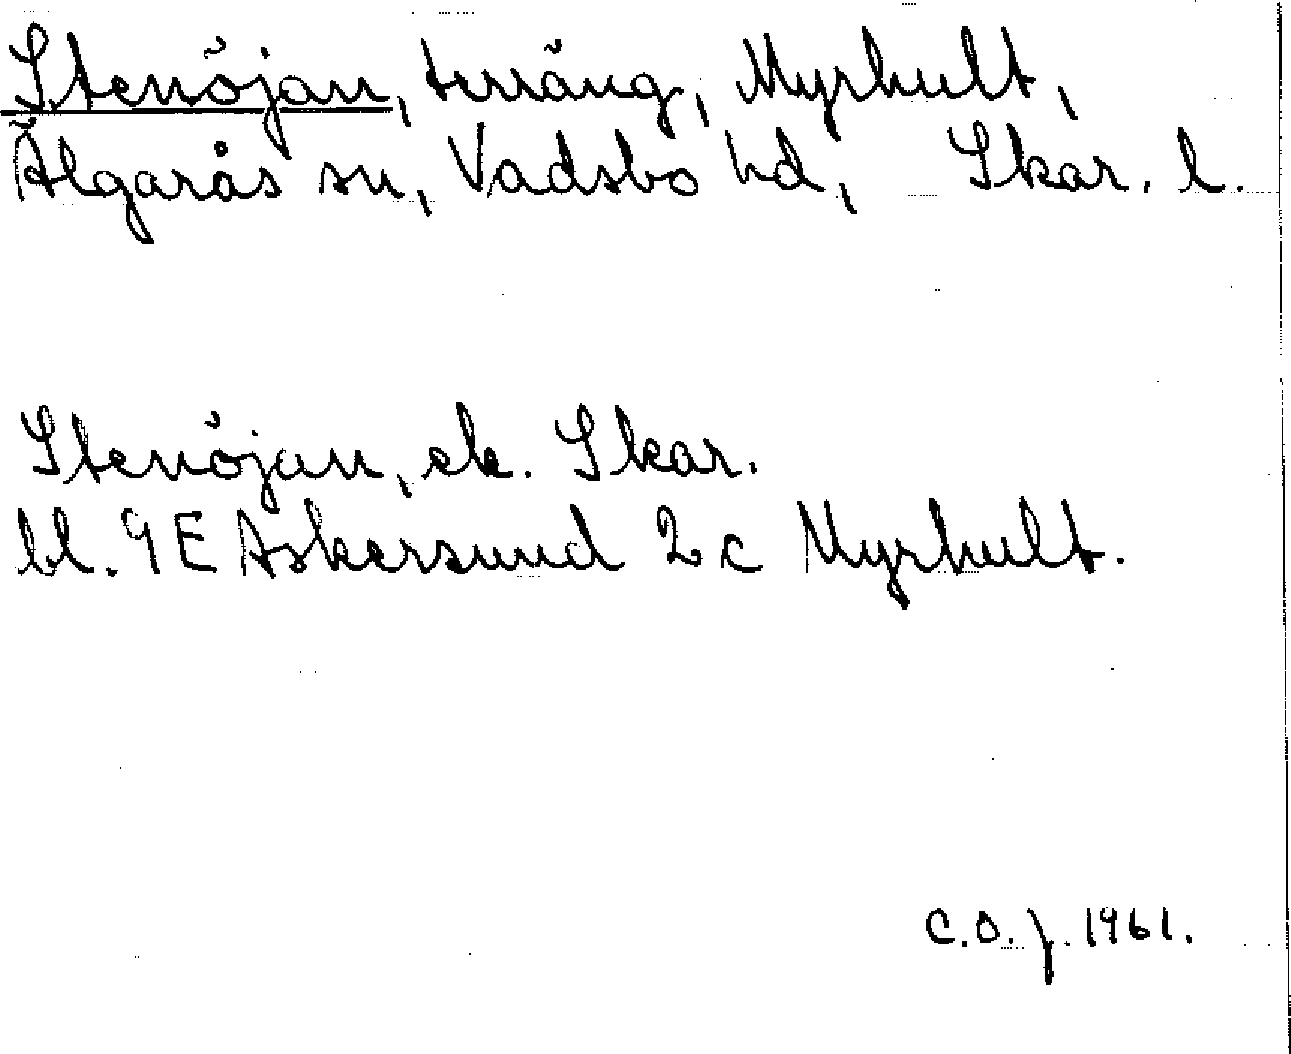 Stenöjan, terräng, Myrhult,
Älgarås sn, Vadsbo hd, Skar. l.
Stenöjan, ek. Skar.
bl. 9E Askersund 2c Myrhult.
C.O.J. 1961.